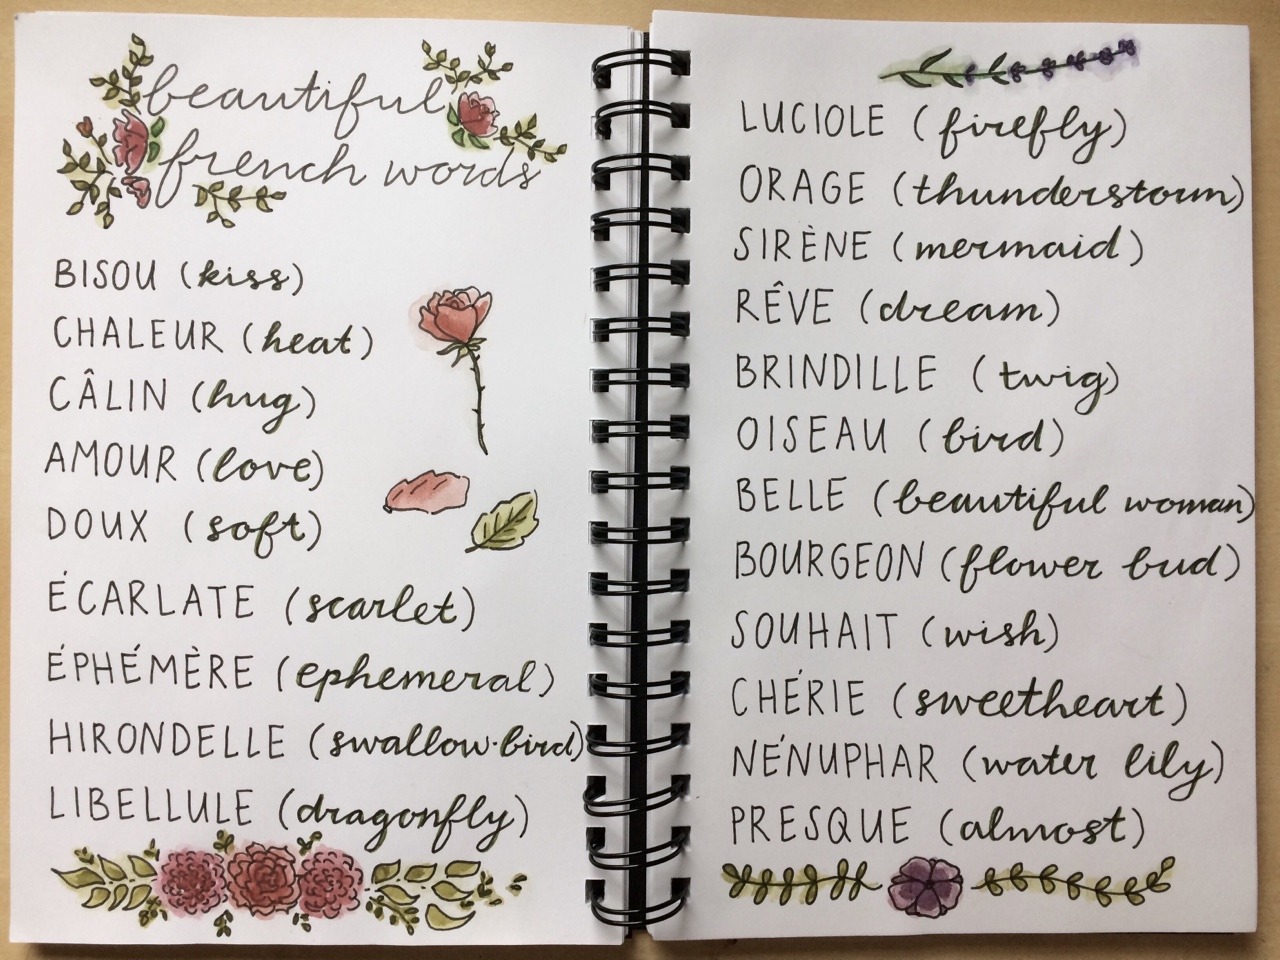 beautiful
french words
BISOU (kiss)
CHALEUR (heat)
CÂLIN (hug)
AMOUR (love)
DOUX (soft)
ÉCARLATE (scarlet)
ÉPHÉMÈRE (ephemeral)
HIRONDELLE (swallow-bird)
LIBELLULE (dragonfly)
LUCIOLE (firefly)
ORAGE (thunderstorm)
SIRÈNE (mermaid)
RÊVE (dream)
BRINDILLE (twig)
OISEAU (bird)
BELLE (beautiful woman)
BOURGEON (flower bud)
SOUHAIT (wish)
CHÉRIE (sweetheart)
NÉNUPHAR (water lily)
PRESQUE (almost)